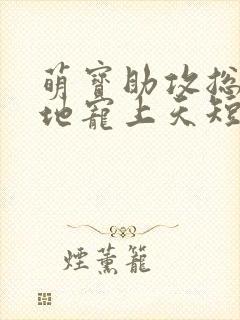 萌寶助攻總
地寵上天短
煙薰籠